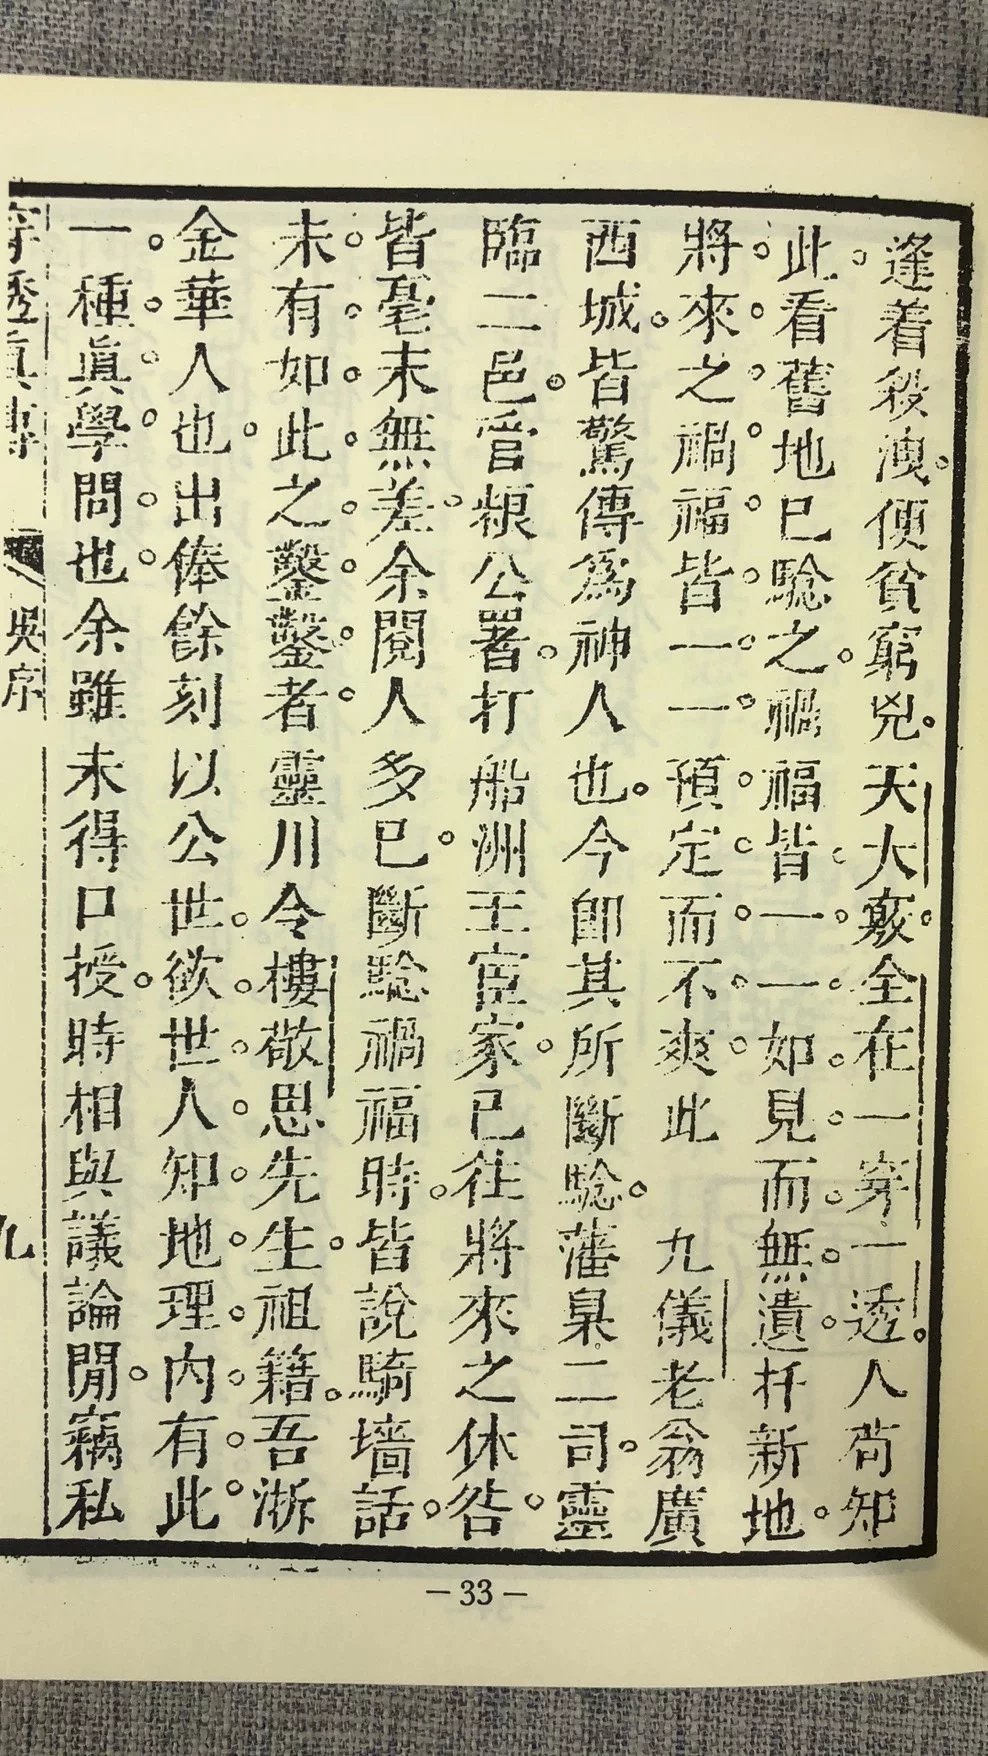 逢着殺洩。便貧窮兇。天大竅。全在一穿一透。人苟知
此。看舊地已騐之。禍福皆一一如見而無遺。扦新地。
將來之禍福皆一一預定而不爽。此 九儀老翁廣
西城。皆驚傳爲神人也。今卽其所斷騐。藩臬二司。靈
臨二邑。管粮公署。打船洲王宦家。已往將來之休咎。
皆毫末無差。余閱人多已。斷騐禍福時。皆說騎墻話。
未有如此之鑿鑿者。靈川令樓敬思先生。祖籍。吾浙
金華人也。出俸餘刻以公世。欲世人知地理内有此。
一種眞學問也。余雖未得口授。時相與議論閒。竊私
穿透眞傳 吳序 九
—33—